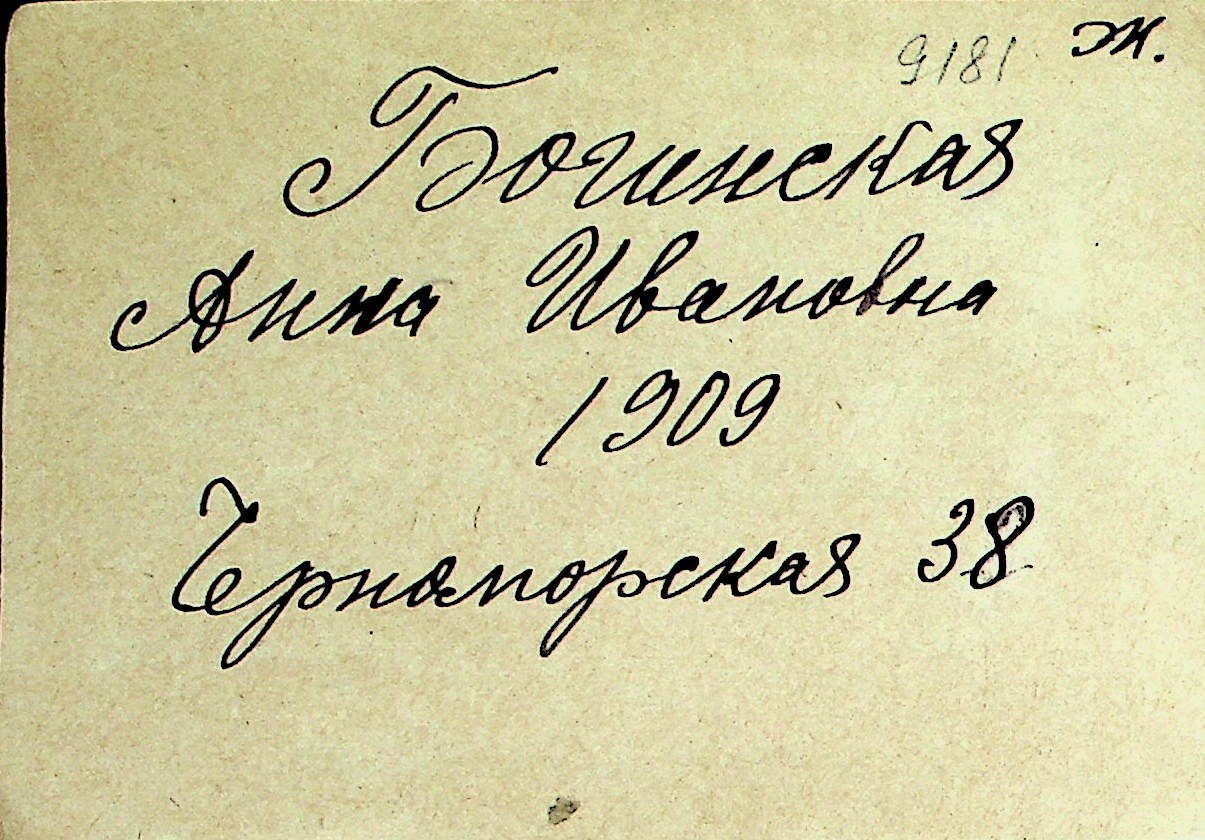 9181 ж.
Богинская
Анна Ивановна
1909
Черноморская 38